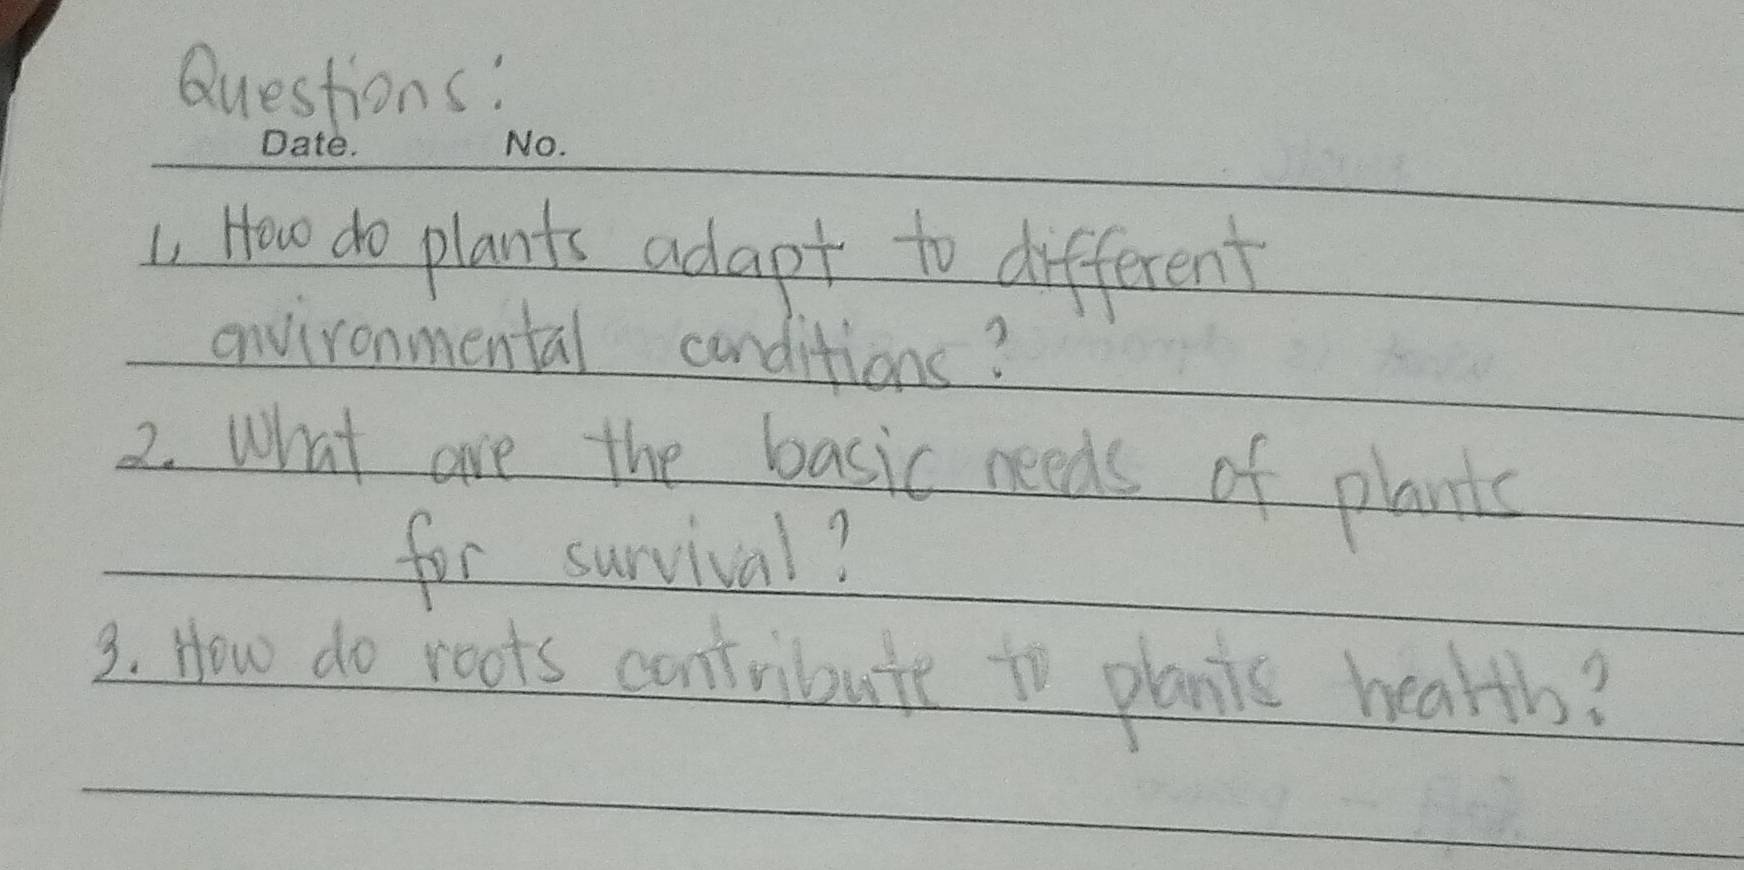 Questions:
Date. No.
1. How do plants adapt to different
environmental conditions?
2. What are the basic needs of plants
for survival?
3. How do roots contribute to plants health?